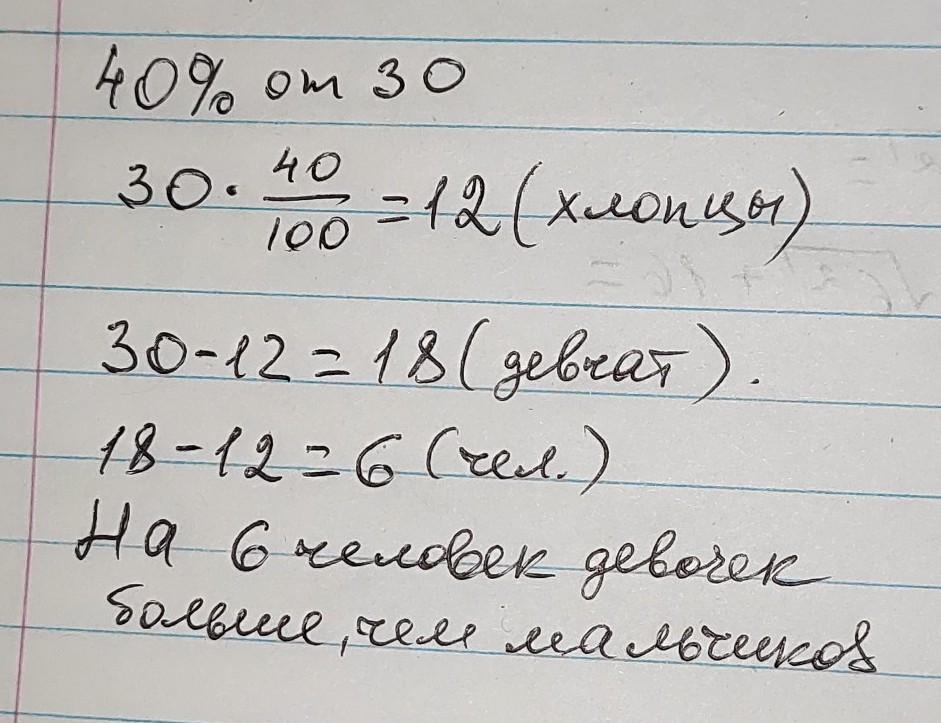 40% от 30
30 · 40/100 = 12 (хлопцы)
30 - 12 = 18 (девчат).
18 - 12 = 6 (чел.)
На 6 человек девочек
больше, чем мальчиков